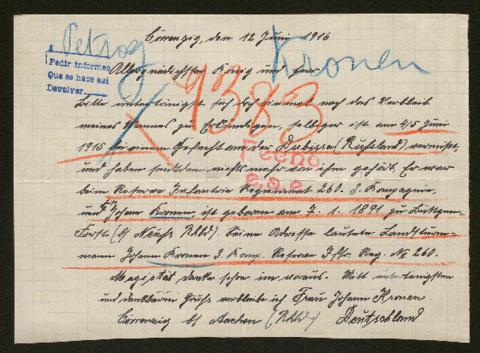 Körrenzig, den 12 Juni 1916
Petrog
Kronen
Pedir informes
Que es hace así
Devolver
9383
Allergnädigster König und Herr
Bitte untertänigst sich doch einmal nach das Verbleib
meines Mannes zu erkundigen, selbiger ist am 4/5 Juni
1915 bei einem Gefecht an der Dubissa (Rußland), vermißt,
und haben seitdem nichts mehr von ihm gehört. Er war
Fecho
beim Reserve Infanterie Regiment 260. 3. Kompagnie,
und Johann Kronen, ist geboren am 7. 1. 1891 zu
(Rhld) Seine Adresse lautete Landsturm-
mann Johann Kronen 3. Komp. Reserve Inftr. Reg. № 260.
Majestät danke schon im voraus. Mit untertänigsten
und dankbaren Grüße verbleibe ich Frau Johann Kronen
Körrenzig bei Aachen (Rhld) Deutschland